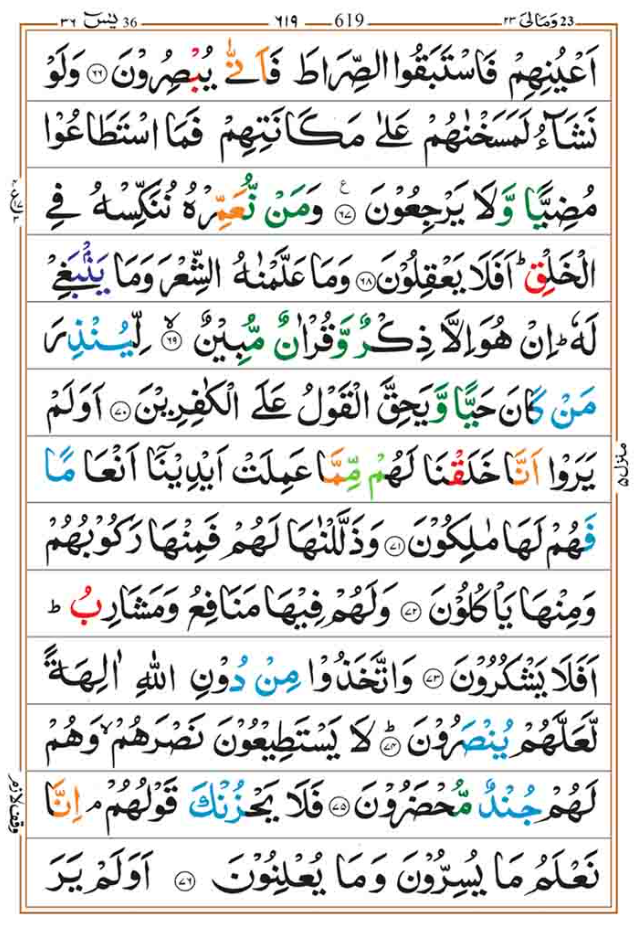 يٰسٓ 36 ٣٦ ٦١٩ 619 وَمَالِىَ 23 ٢٣
اَعْيُنِهِمْ فَاسْتَبَقُوا الصِّرَاطَ فَاَنّٰى يُبْصِرُوْنَ ﴿٦٦﴾ وَلَوْ
نَشَآءُ لَمَسَخْنٰهُمْ عَلٰى مَكَانَتِهِمْ فَمَا اسْتَطَاعُوْا
مُضِيًّا وَّلَا يَرْجِعُوْنَ ﴿٦٧﴾ ع وَمَنْ نُّعَمِّرْهُ نُنَكِّسْهُ فِى
الْخَلْقِ ؕ اَفَلَا يَعْقِلُوْنَ ﴿٦٨﴾ وَمَا عَلَّمْنٰهُ الشِّعْرَ وَمَا يَنْۢبَغِىْ
لَهٗ ؕ اِنْ هُوَ اِلَّا ذِكْرٌ وَّقُرْاٰنٌ مُّبِيْنٌ ۙ ﴿٦٩﴾ لِّيُنْذِرَ
مَنْ كَانَ حَيًّا وَّيَحِقَّ الْقَوْلُ عَلَى الْكٰفِرِيْنَ ﴿٧٠﴾ اَوَلَمْ
يَرَوْا اَنَّا خَلَقْنَا لَهُمْ مِّمَّا عَمِلَتْ اَيْدِيْنَاۤ اَنْعَامًا
فَهُمْ لَهَا مٰلِكُوْنَ ﴿٧١﴾ وَذَلَّلْنٰهَا لَهُمْ فَمِنْهَا رَكُوْبُهُمْ
وَمِنْهَا يَاْكُلُوْنَ ﴿٧٢﴾ وَلَهُمْ فِيْهَا مَنَافِعُ وَمَشَارِبُ ؕ
اَفَلَا يَشْكُرُوْنَ ﴿٧٣﴾ وَاتَّخَذُوْا مِنْ دُوْنِ اللّٰهِ اٰلِهَةً
لَّعَلَّهُمْ يُنْصَرُوْنَ ؕ ﴿٧٤﴾ لَا يَسْتَطِيْعُوْنَ نَصْرَهُمْ ۙ وَهُمْ
لَهُمْ جُنْدٌ مُّحْضَرُوْنَ ﴿٧٥﴾ فَلَا يَحْزُنْكَ قَوْلُهُمْ ۘ اِنَّا
نَعْلَمُ مَا يُسِرُّوْنَ وَمَا يُعْلِنُوْنَ ﴿٧٦﴾ اَوَلَمْ يَرَ
منزل ٥
وقف لازم